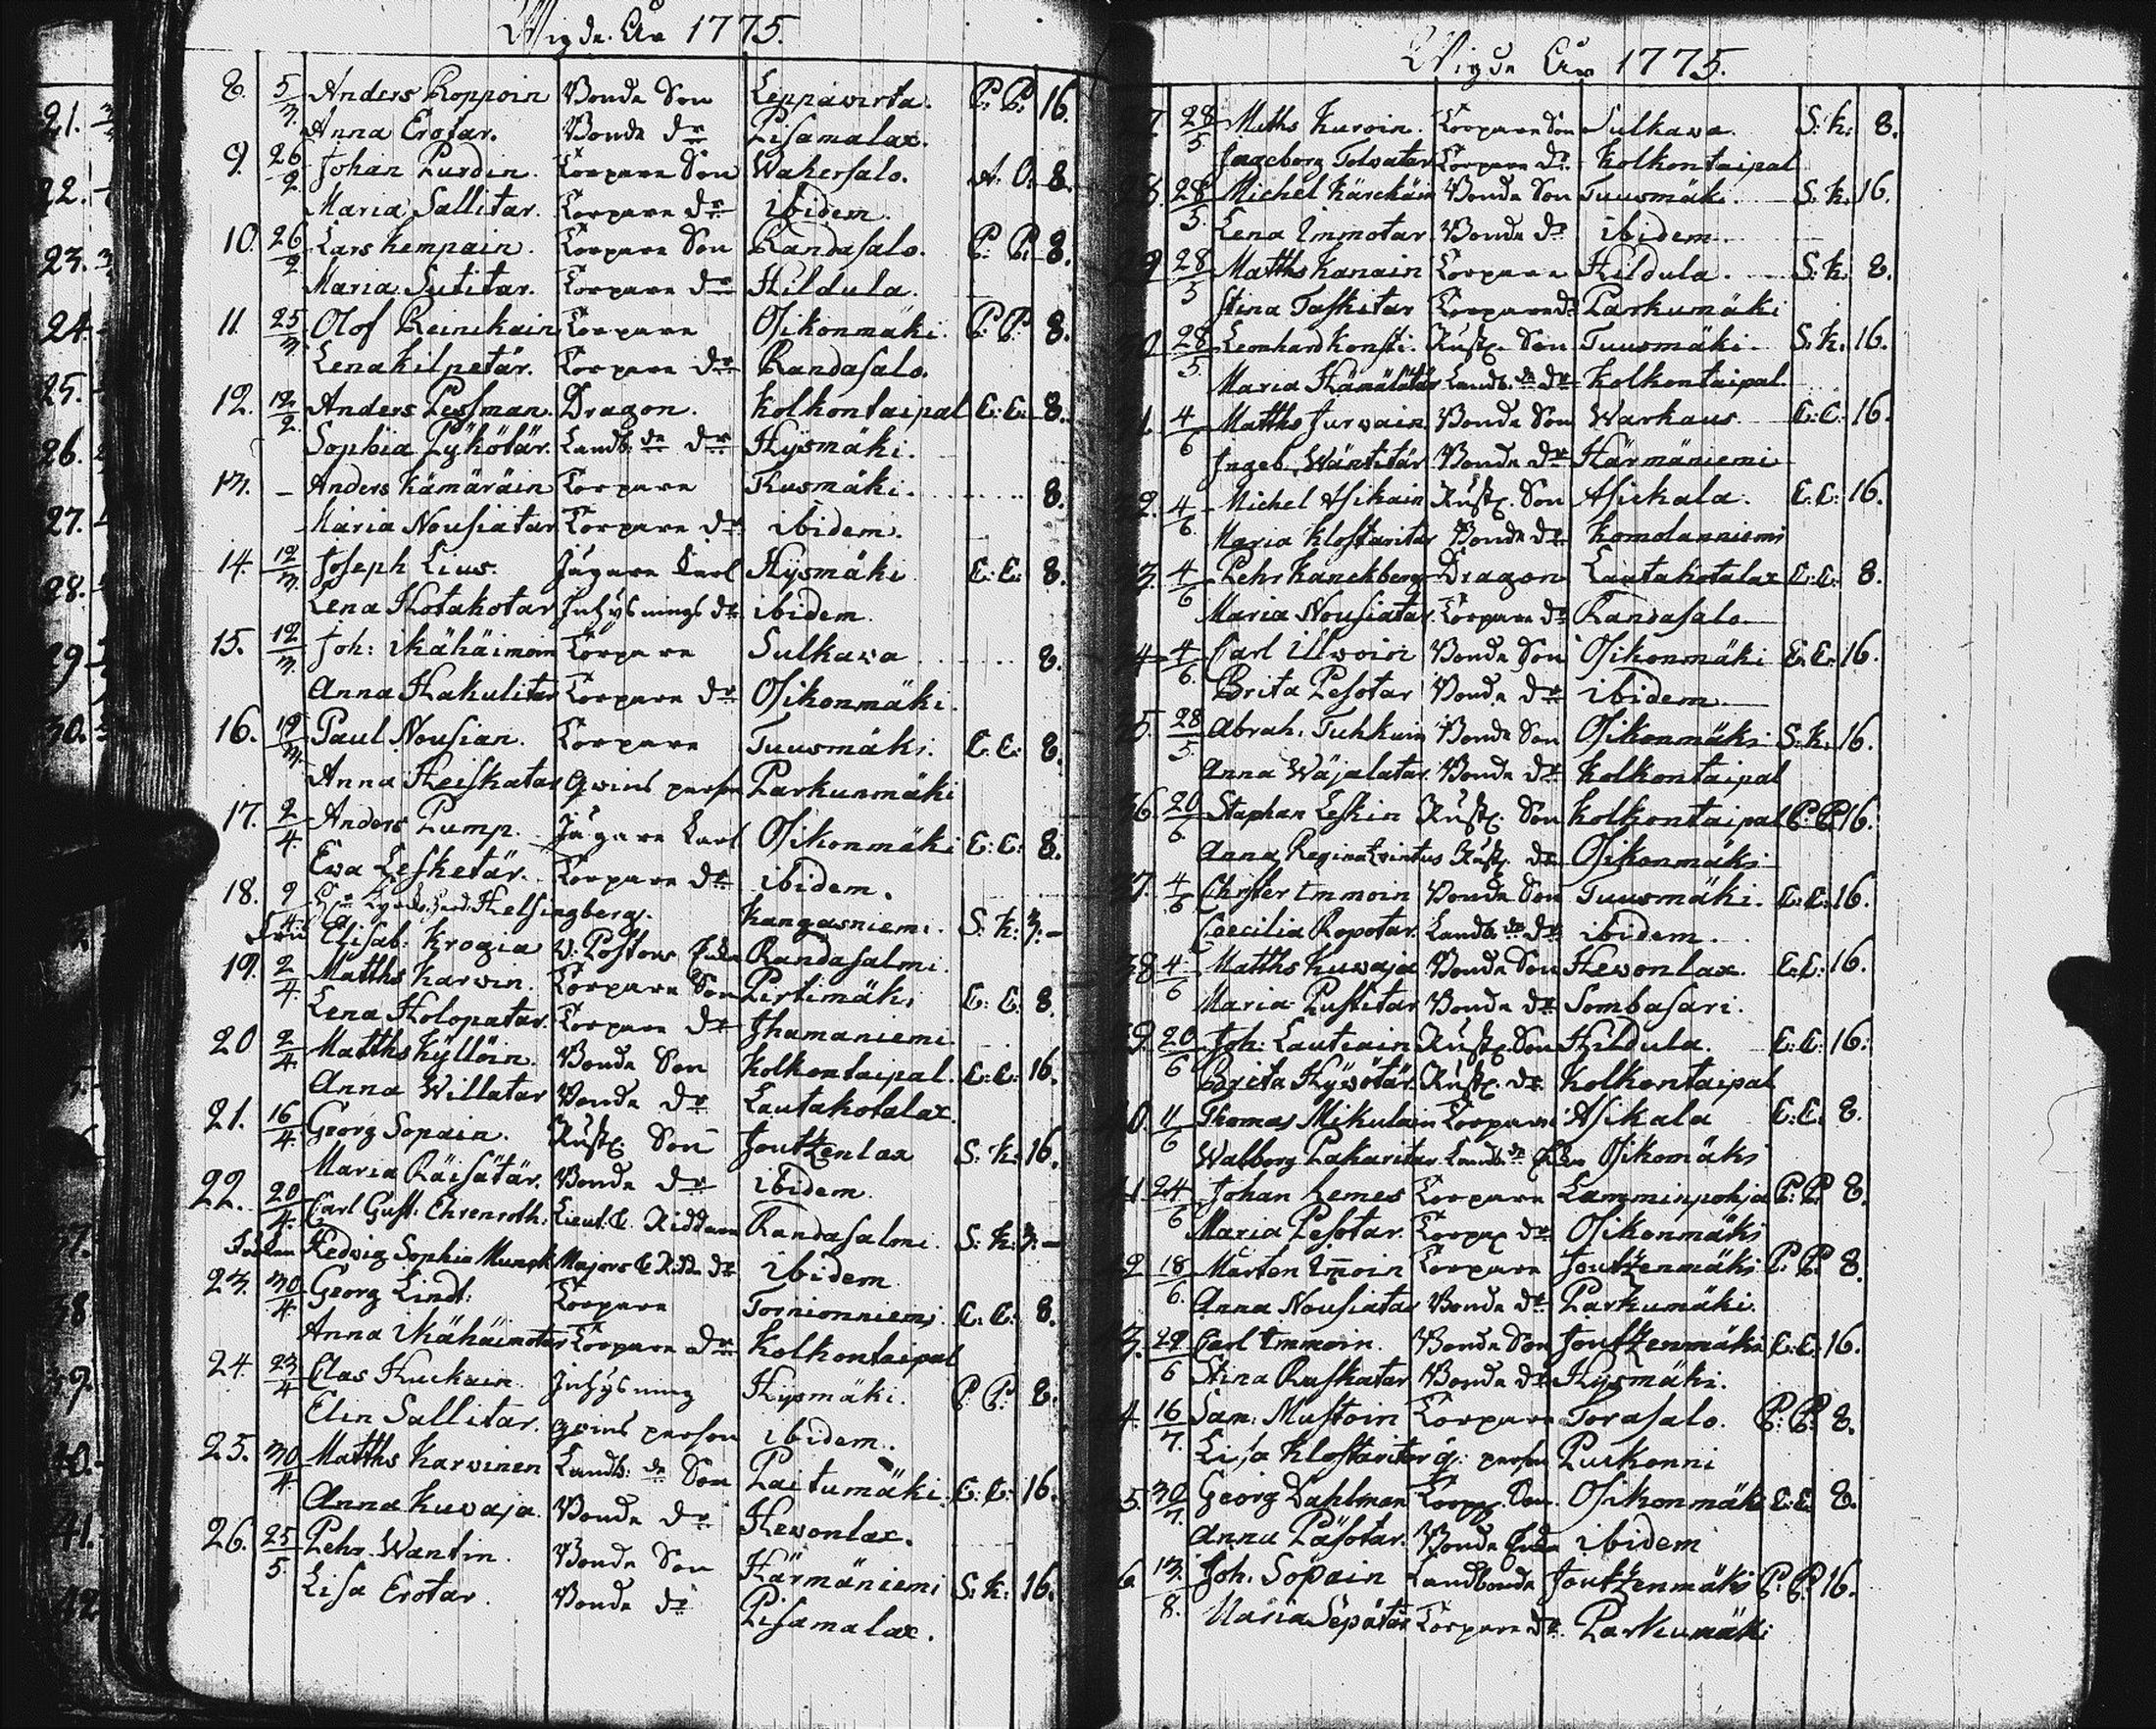 Wigde År 1775.
8. 5/3. Anders Roppoin Bonde Son Leppäwirta. P: P: 16.
Anna Erotar. Bonde dr Pisamalax.
9. 26/2 Johan Purdin. Torpare Son Wakersalo. A. O. 8.
Maria Sallitar. Torpare dr ibidem.
10. 26/2 Lars Kempain. Torpare Son Randasalo. P: P. 8.
Maria Sutitar. Torpare dr Hildula.
11 25/3. Olof Reinikain Torpare Osikonmäki P: P. 8.
Lena Kilpetär. Torpare dr Randasalo.
12. 12/2. Anders Pessman. Dragon. Kolkontaipal C: C. 8.
Sophia Pyhötär. Landb. de dr Hysmäki.
13. – Anders Hämäräin Torpare Rusmäki. 8.
Maria Nousiatar Torpare dr ibidem.
14. 12/3. Joseph Lius. Jägare Karl Hysmäki C: C: 8.
Lena Hotakotar Inhysnings dr ibidem.
15. 12/3. Joh: Mähäimoin Torpare Sulkawa 8.
Anna Hakulitar Torpare dr Osikonmäki.
16. 12/3. Paul Nousian. Torpare Tuusmäki. C: C: 8.
Anna Heiskatar Qwins person Parkunmäki
17. 2/4. Anders Pump. Jägare Karl Osikonmäki C: C: 8.
Ewa Lesketär. Torpare dr ibidem.
18. 9/4 Helsingberg. Kangasniemi. S: K: 3.–
Fru Elisab: Krogia V: Pastors Enka Randasalmi.
19. 2/4. Matths Karwin. Torpare Son Pirtimäki C: C: 8.
Lena Holopatar. Torpare dr Ihamaniemi
20 2/4. Matths Kyllöin. Bonde Son Kolkontaipal. C: C: 16.
Anna Willatar Bonde dr Lautakotalax.
21. 16/4. Georg Sopain. Rust. Son Joutzenlax S: K: 16.
Maria Räisätär. Bonde dr ibidem
22. 20/4. Carl Gust: Ehrenroth. Lieut: & Riddare Randasalmi. S: K: 3.–
Fröken Hedwig Sophia Munck Majors & Ridd. dr ibidem
23. 30/4. Georg Lindt: Torpare Tornionniemi. C: C: 8.
Anna Mähäimotar Torpare dr Kolkontaipal
24. 23/4 Clas Kuckain Inhysning Hysmäki. P: P: 8.
Elin Sallitar. qwins person ibidem.
25. 30/4. Matths Karwinen Landb: de Son Paitumäki. C: C: 16.
Anna Kuwaja. Bonde dr Hewonlax.
26. 25/5. Pehr Wantin. Bonde Son Härmäniemi S: K: 16.
Lisa Erotar. Bonde dr Pisamalax.
Wigde År 1775.
7 28/5 Matths Kuroin. Torpare Son Sulkawa. S: K: 8.
Ingeborg Tolwatar Torpare dr Kolkontaipal
28. 28/5. Michel Kärckäin Bonde Son Tuusmäki. S: K: 16.
Lena Immotar Bonde dr ibidem
29 28/5 Matths Kanain Torpare Hildula. S: K: 8.
Stina Taskitar Torpare dr Parkumäki
28/5. Leonhard Konsti. Rust. Son Tuusmäki. S: K: 16.
Maria Hämälätär Landb. de dr Kolkontaipal
1 4/6 Matths Jurwain Bonde Son Warkaus C: C: 16.
Ingeb. Wäntitär Bonde dr Härmäniemi
32. 4/6 Michel Asikain Rust. Son Asickala. C: C: 16.
Maria Klostaritar Bonde dr Komolanniemi
3. 4/6 Pehr Kanckberg Dragon Lautakotalax C: C: 8.
Maria Nousiatar. Torpare dr Randasalo
4 4/6. Carl Ilwoin Bonde Son Osikonmäki C: C: 16.
Brita Pesotar Bonde dr ibidem
35. 28/5. Abrah. Tuhkuin Bonde Son Osikonmäki S: K: 16.
Anna Wäjalatar. Bonde dr Kolkontaipal
36. 20/6 Staphan Leskin Rust. Son Kolkontaipal P: P. 16.
Anna Regina Rust. dr Osikonmäki
37. 4/6 Christer Immoin Bonde Son Tuusmäki. C: C: 16.
Caecilia Ropotar. Landb. de dr ibidem.
38 4/6 Matths Kuwaja Bonde Son Hewonlax. C: C: 16.
Maria Puttitar Bonde dr Sombasari.
39. 20/6 Joh: Lautiain Rust. Son Hildula. C: C: 16.
Brita Hywötär. Rust. dr Kolkontaipal
40. 11/6 Thomas Mikulain Torpare Asikala C: C. 8.
Walborg Pakaritar Landb. de Enka Osikomäki
41. 24/6 Johan Lemes Torpare Lamminpohja P: P. 8.
Maria Pesotar. Torpar dr Osikonmäki
42 18/6. Mårten Immoin Torpare Joutzenmäki P: P. 8.
Anna Nousiatar Bonde dr Parkumäki
3. 29/6 Carl Immoin. Bonde Son Joutzenmäki C: C: 16.
Stina Ruskatar Bonde dr Hysmäki.
4. 16/7. Sam: Mustoin Torpare Torasalo. P: P: 8.
Lisa Klostaritar q: person Puckonni
5. 30/7. Georg Dahlman Torp. Son. Osikonmäki C: C. 8.
Anna Päsotar. Bonde Enka ibidem
6. 13/8. Joh. Söpain Landbonde Joutzenmäki P: P. 16.
Maria Sepätär Torpare dr. Parkumäki